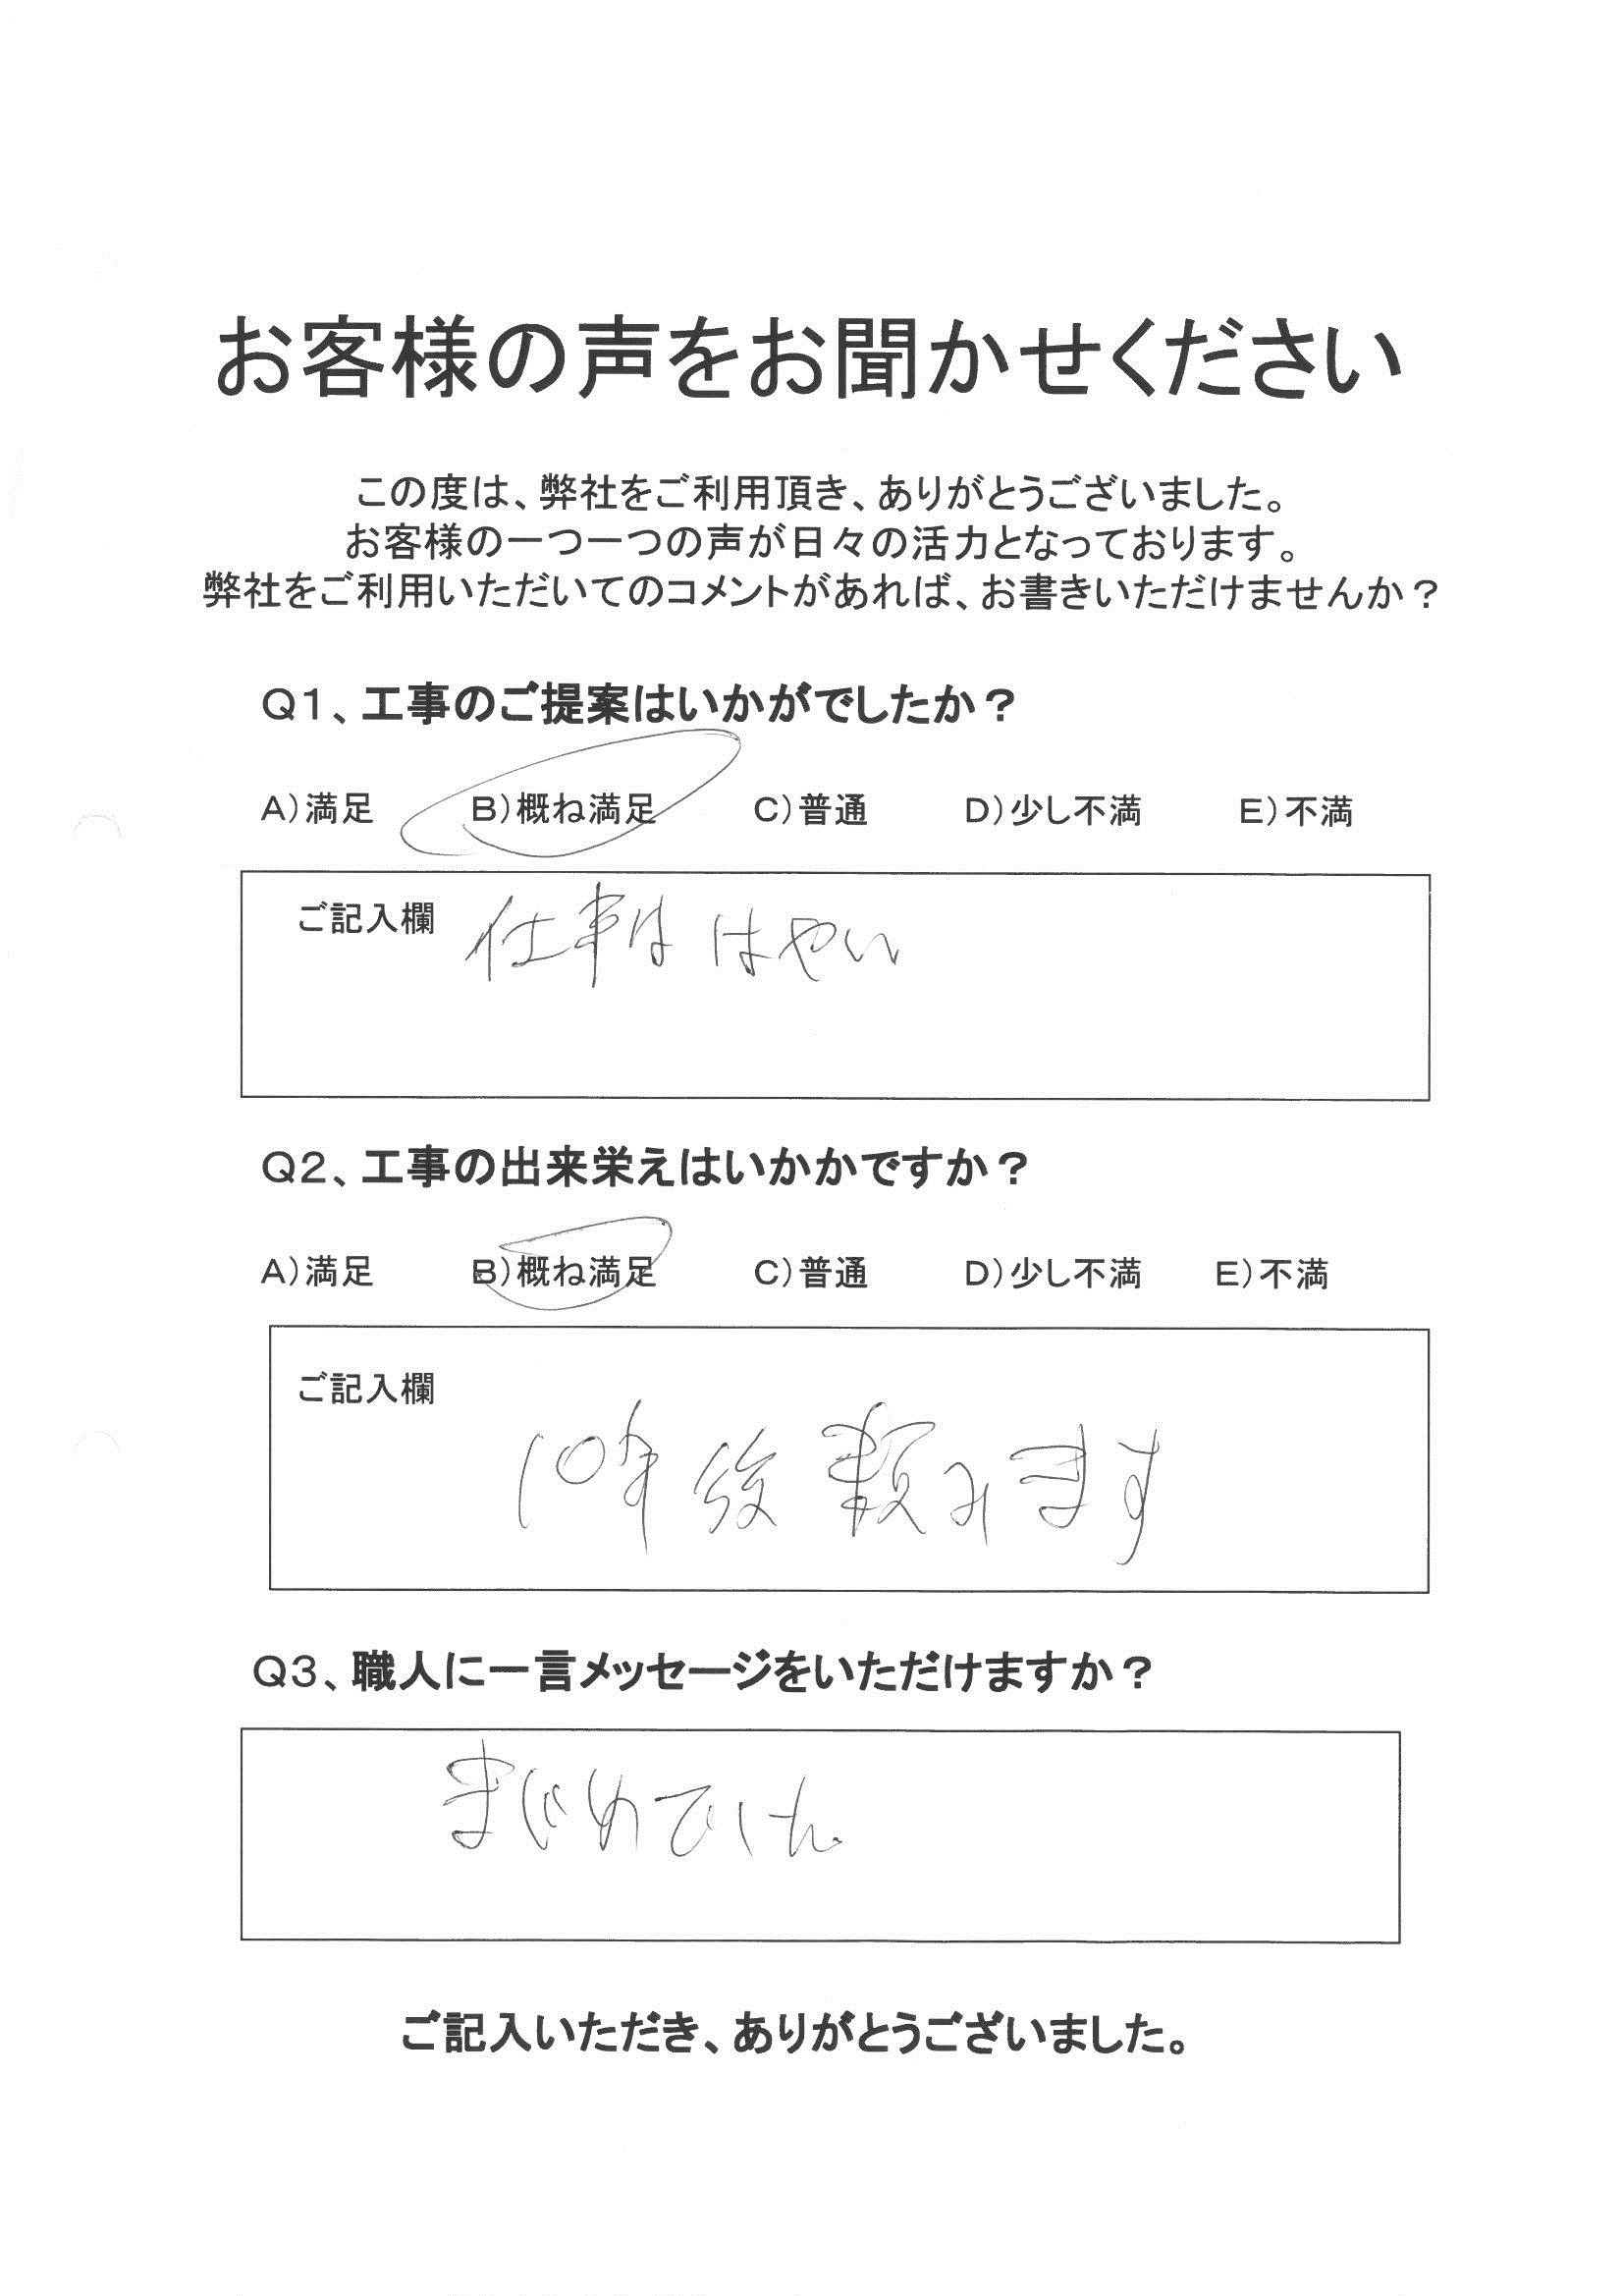 お客様の声をお聞かせください
この度は、弊社をご利用頂き、ありがとうございました。
お客様の一つ一つの声が日々の活力となっております。
弊社をご利用いただいてのコメントがあれば、お書きいただけませんか？
Q1、工事のご提案はいかがでしたか？
A)満足 B)概ね満足 C)普通 D)少し不満 E)不満
ご記入欄 仕事は はやい
Q2、工事の出来栄えはいかかですか？
A)満足 B)概ね満足 C)普通 D)少し不満 E)不満
ご記入欄
10年後 頼みます
Q3、職人に一言メッセージをいただけますか？
まじめで
ご記入いただき、ありがとうございました。